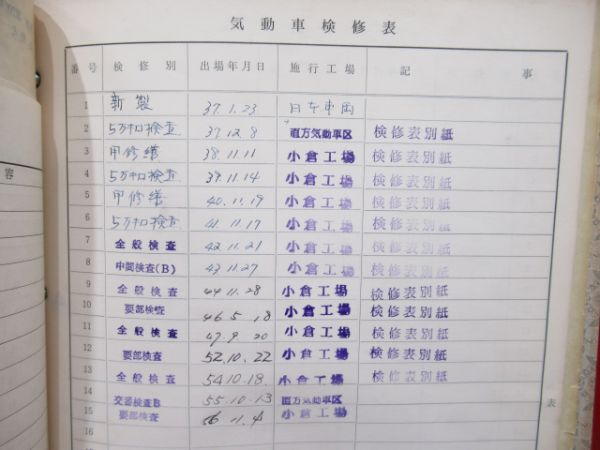 気動車検修表
番号 検修別 出場年月日 施行工場 記事
1 新製 37.1.23 日本車両
2 5万キロ検査 37.12.8 直方気動車区 検修表別紙
3 甲修繕 38.11.11 小倉工場 検修表別紙
4 5万キロ検査 39.11.14 小倉工場 検修表別紙
5 甲修繕 40.11.19 小倉工場 検修表別紙
6 5万キロ検査 41.11.17 小倉工場 検修表別紙
7 全般検査 42.11.21 小倉工場 検修表別紙
8 中間検査(B) 43.11.27 小倉工場 検修表別紙
9 全般検査 44.11.28 小倉工場 検修表別紙
10 要部検査 46.5.18 小倉工場 検修表別紙
11 全般検査 47.9.20 小倉工場 検修表別紙
12 要部検査 52.10.22 小倉工場 検修表別紙
13 全般検査 54.10.18. 小倉工場 検修表別紙
14 交番検査B 55.10.13 直方気動車区
15 要部検査 56.11.4 小倉工場
16
容
表